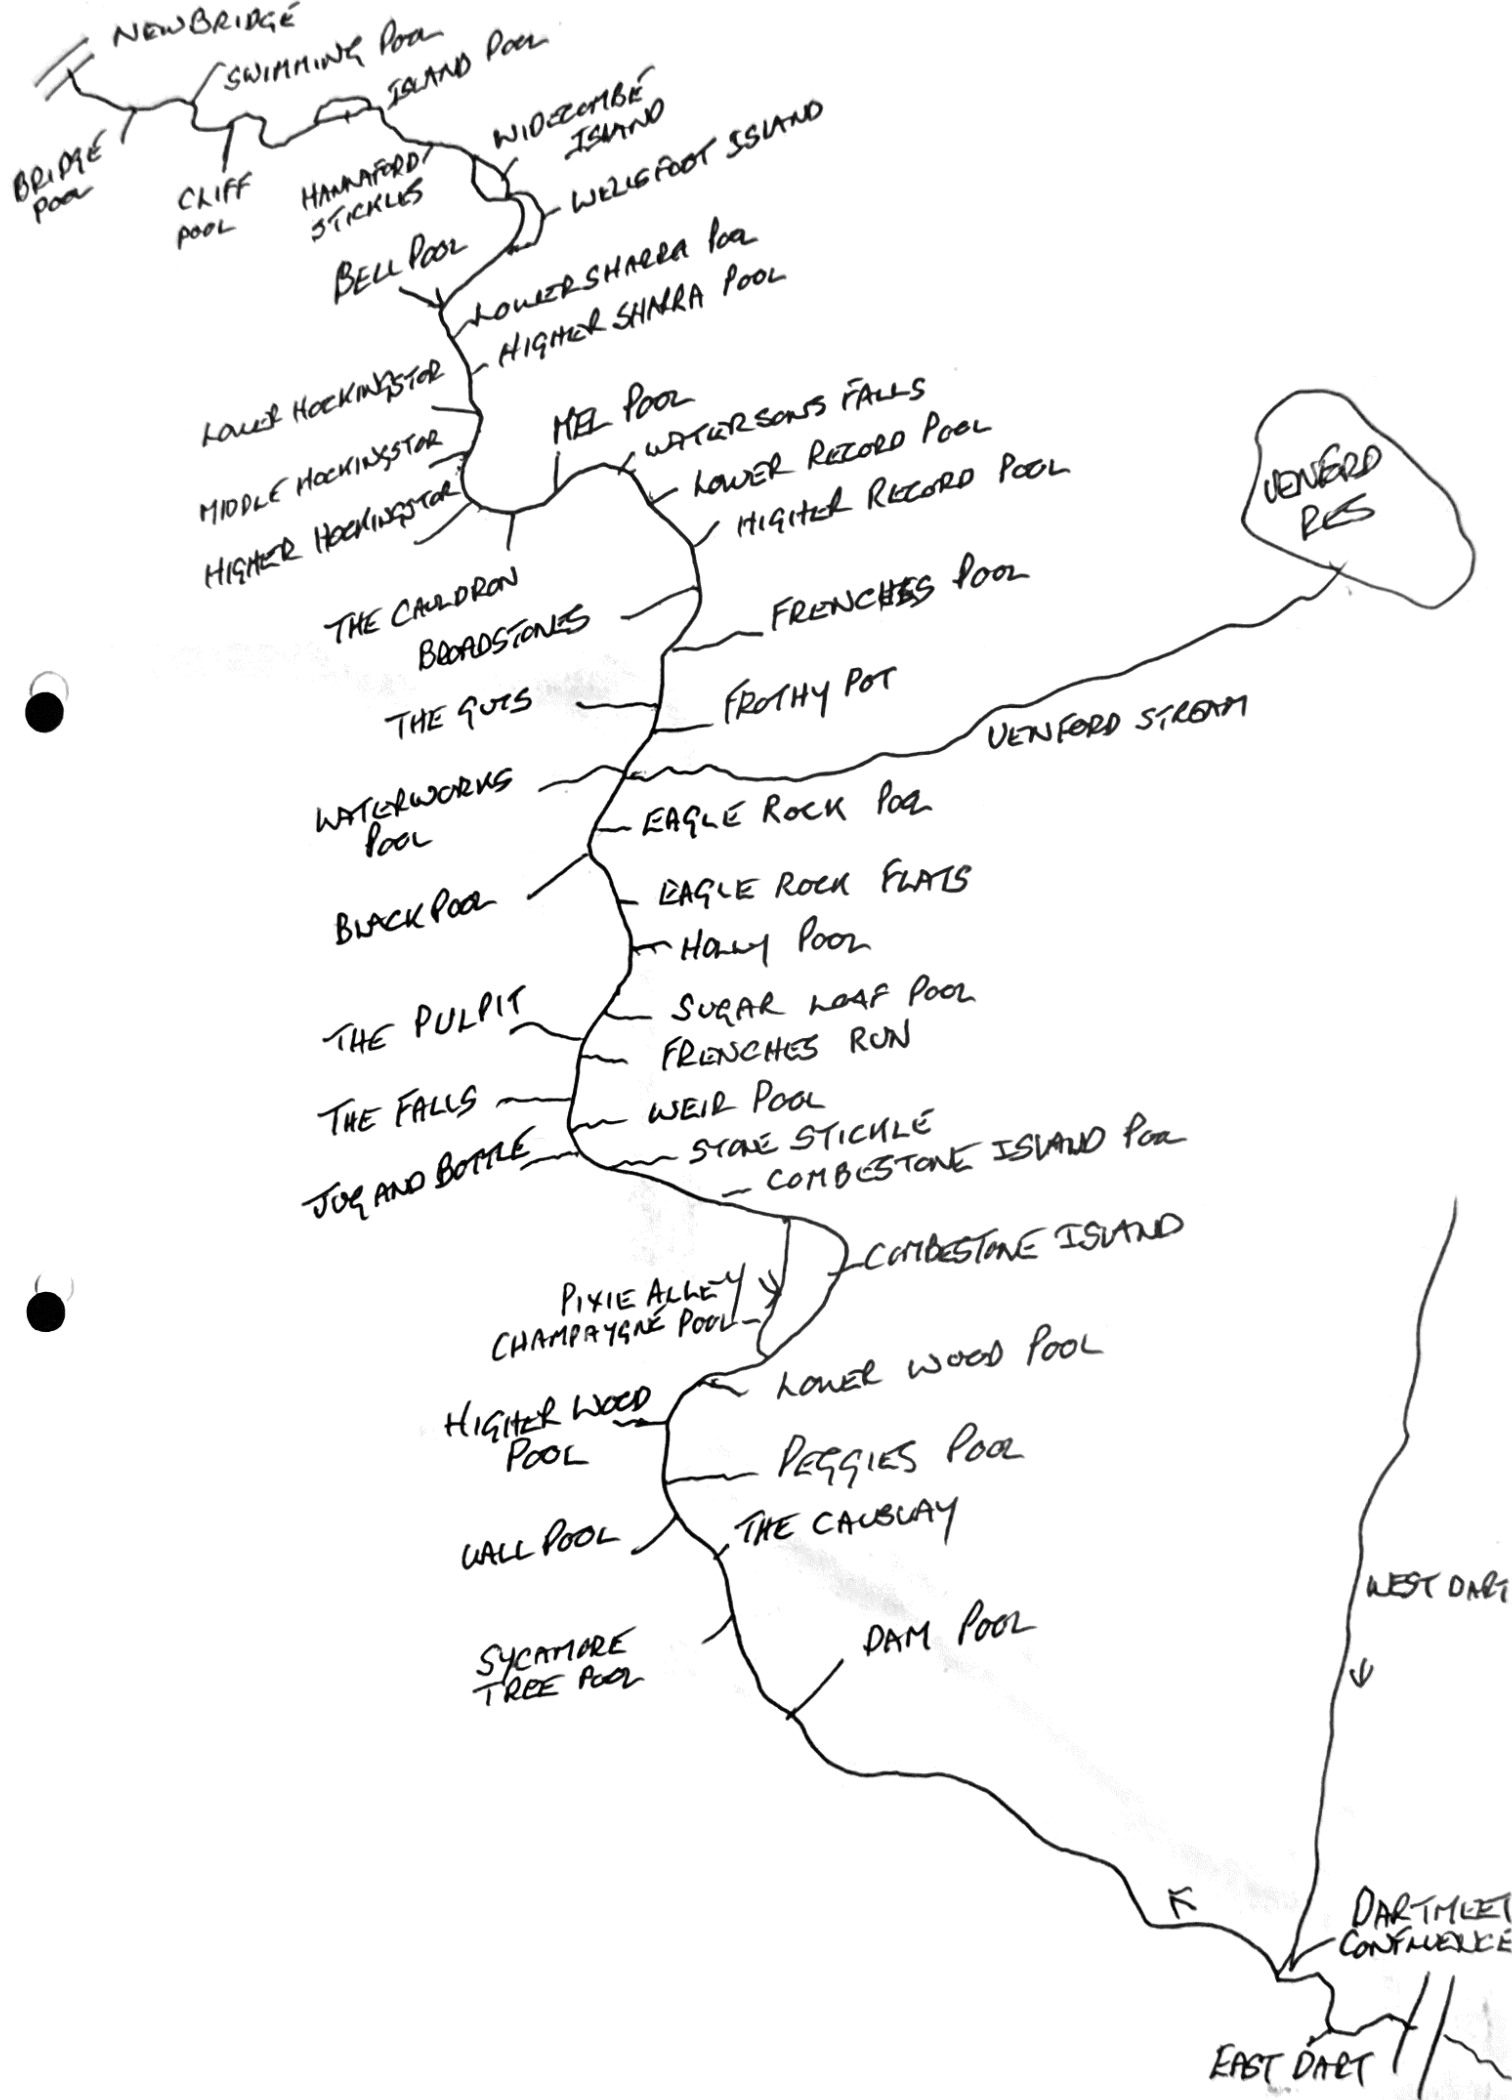 NEWBRIDGE
SWIMMING POOL
ISLAND POOL
BRIDGE
POOL
CLIFF
POOL
HANNAFORD
STICKLES
WIDECOMBE
ISLAND
WELLSFOOT ISLAND
BELL POOL
LOWER SHARRA POOL
HIGHER SHARRA POOL
LOWER HOCKINGSTOR
MIDDLE HOCKINGSTOR
HIGHER HOCKINGSTOR
MEL POOL
WATERSONS FALLS
LOWER RECORD POOL
HIGHER RECORD POOL
VENFORD
RES
THE CAULDRON
BROADSTONES
FRENCHES POOL
THE GUTS
FROTHY POT
VENFORD STREAM
WATERWORKS
POOL
EAGLE ROCK POOL
BLACK POOL
EAGLE ROCK FLATS
HOLLY POOL
THE PULPIT
SUGAR LOAF POOL
FRENCHES RUN
THE FALLS
WEIR POOL
JUG AND BOTTLE
STONE STICKLE
COMBESTONE ISLAND POOL
COMBESTONE ISLAND
PIXIE ALLEY
CHAMPAYGNE POOL
LOWER WOOD POOL
HIGHER WOOD
POOL
PEGGIES POOL
WALL POOL
THE CAUSWAY
WEST DART
SYCAMORE
TREE POOL
DAM POOL
DARTMEET
CONFLUENCE
EAST DART